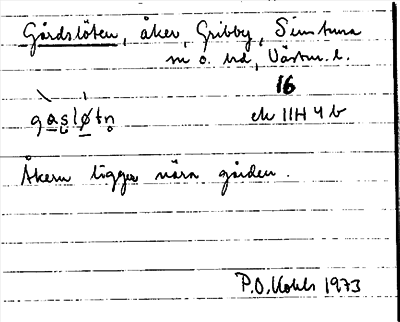 Gårdslöten, åker, Gribby, Simtuna
sn o. hd, Västm. l.
16
gàslø̀tn
ek 11H 4 b
Åkern ligger nära gården.
P.O. 1973